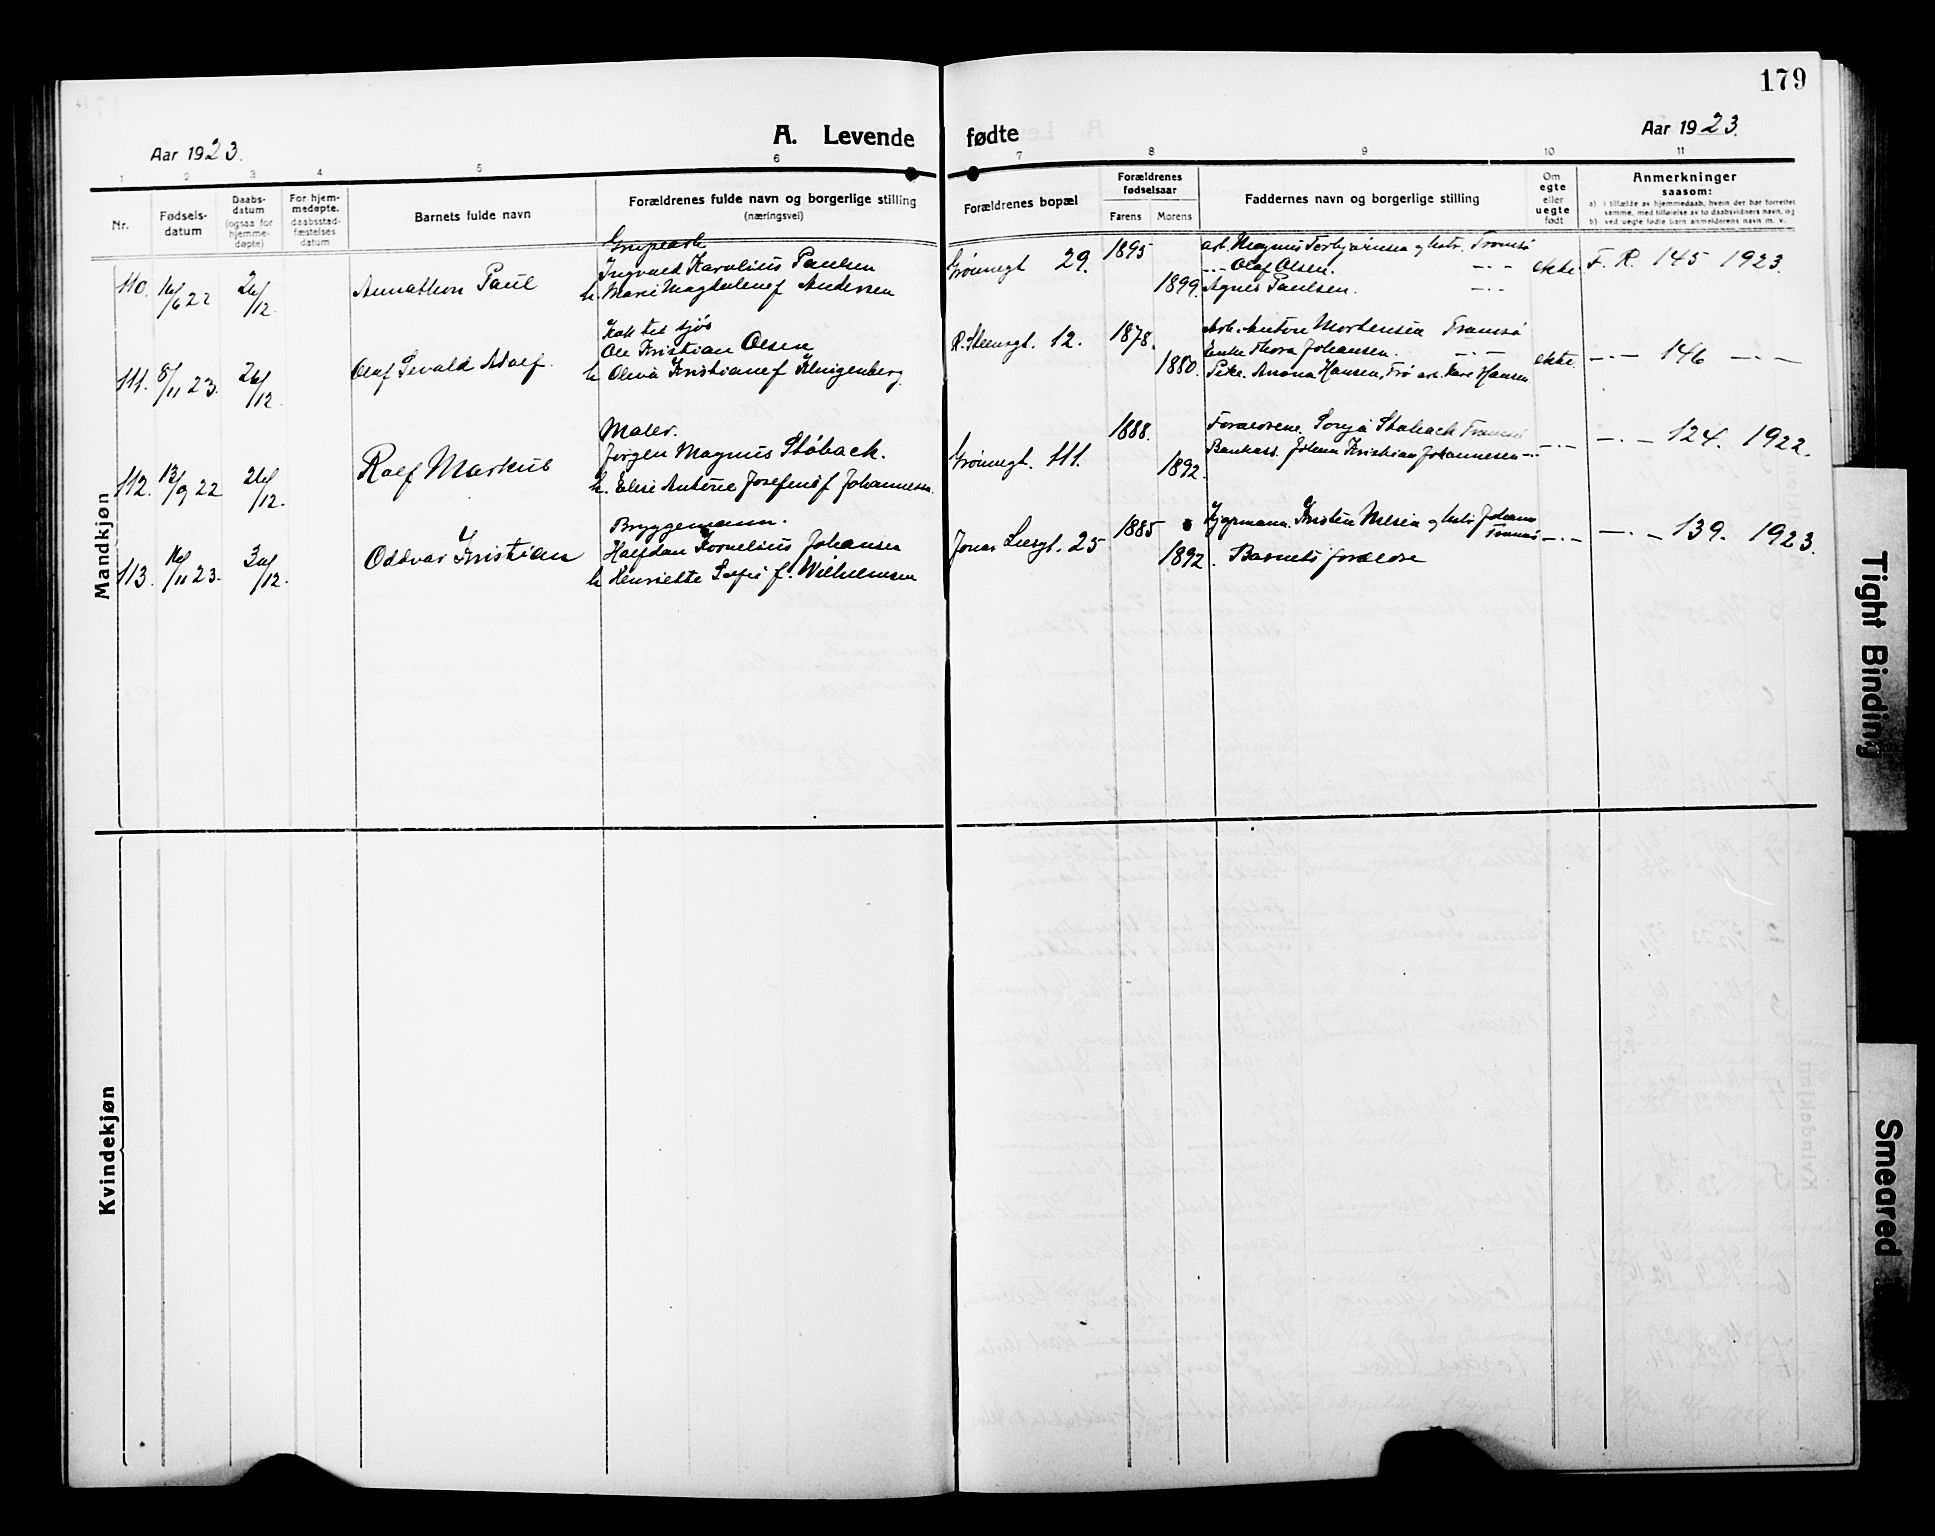 179
Aar 1923.
A. Levende fødte
Aar 1923.
1 2 3 4 5 6 7 8 9 10 11
Nr.
Fødsels-
datum
Daabs-
datum
(ogsaa for
hjemme-
døpte)
For hjem-
medøpte.
daabsstad-
fæstelses
datum
Barnets fulde navn
Forældrenes fulde navn og borgerlige stilling
(næringsvei)
Forældrenes bopæl
Forældrenes
fødselsaar
Farens Morens
Faddernes navn og borgerlige stilling
Om
egte
eller
uegte
født
Anmerkninger
saasom:
a) i tilfælde av hjemmedaab, hvem der har forrettet
samme, med tilføielse av to daabsvidners navn, og
b) ved uegte fødte barn anmelderens navn m. v.
Mandkjøn
110. 16/6 22 26/12. Paul
Ingvald Karolius Paulsen
h. Marie Magdalene f Andersen
Grønnegt 29. 1895
1899.
arb. Magnus Torbjørnsen og hstr. Tromsø
-"- Olaf Olsen. -"-
Agnes Paulsen. -"-
ekte. F. R. 145 1923.
111. 8/11 23. 26/12. Olaf Sevald Adolf.
Ole Kristian Olsen
h. Oleva Kristiane f Klingenberg.
R. Steensgt. 12. 1878.
1880.
Arb. Anton Mortensen Tromsø
Enke Thora Johansen. -"-
Pike. Anona Hansen, Hansen
ekte. -"- 146 -"-
112. 13/9 22 26/12. Rolf Markus
Maler.
Jørgen Magnus Støback.
h. Elise Antonie Josefine f Johannesen.
Grønnegt. 111. 1888.
1892.
Forældrene. Sonja Støback Tromsø
Bankass. Johan Kristian Johannesen -"-
-"- -"- 124. 1922.
113. 16/11 23. 26/12. Oddvar Kristian
Bryggemann.
Halfdan Kornelius Johansen
h Henriette Sofie f. Wilhelmsen
Jonas Liesgt. 25 1885
1892.
Kjørmann. Kristen Nilsen og hstr Johanna
Tromsø
Barnets forældre
-"- -"- 139. 1923.
Kvindekjøn
Tight Binding
Smeared